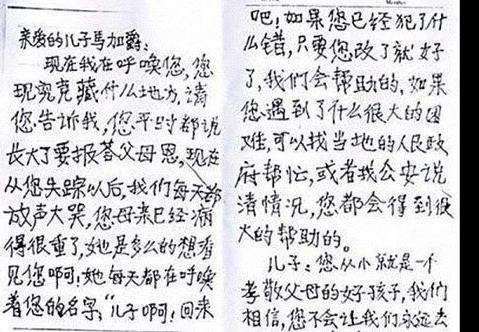 亲爱的儿子馬加爵:
现在我在呼唤您,您
现究竟藏什么地方,请
您告诉我,您平时都说
长大了要报答父母恩,现在
从您失踪以后,我们每天都
放声大哭,您母亲已经病
得很重了,她是多么的想看
见您啊!她每天都在呼唤
着您的名字,“儿子啊!回来
吧!如果您已经犯了什
么错,只要您改了就好
了,我们会帮助的,如果
您遇到了什么很大的困
难,可以找当地的人民政
府帮忙,或者找公安说
清情况,您都会得到很
大的帮助的。
儿子:您从小就是一个
孝敬父母的好孩子,我们
相信,您不会让我们永远去